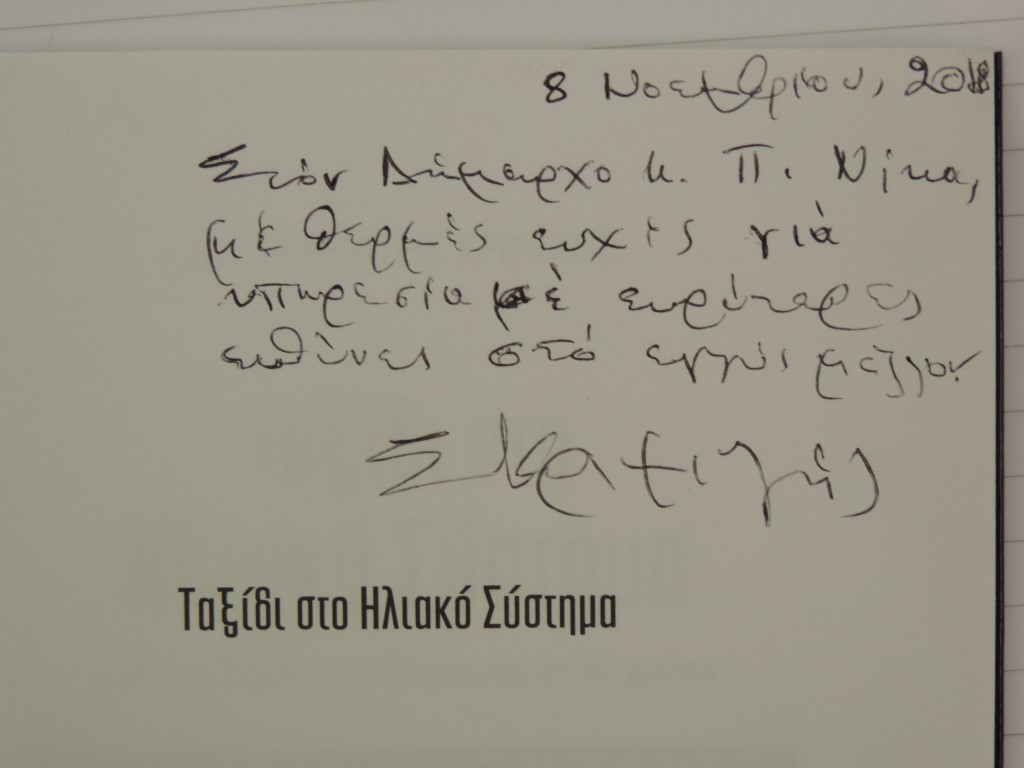 8 Νοεμβρίου, 2018
Στόν Δήμαρχο κ. Π. Νίκα,
μέ θερμές ευχές γιά
υπηρεσία μέ ευρύτερες
ευθύνες στό εγγύς μέλλον.
Ταξίδι στο Ηλιακό Σύστημα